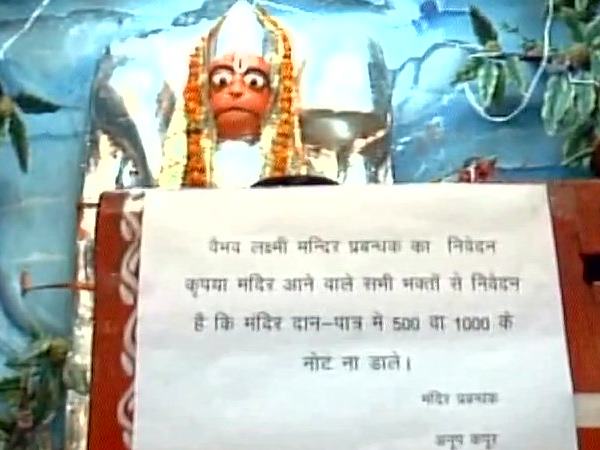 वैभव लक्ष्मी मन्दिर प्रबन्धक का निवेदन
कृपया मंदिर आने वाले सभी भक्तों से निवेदन
है कि मंदिर दान-पात्र मे 500 वा 1000 के
नोट ना डाले।
मंदिर प्रबन्धक
अनूप कपूर